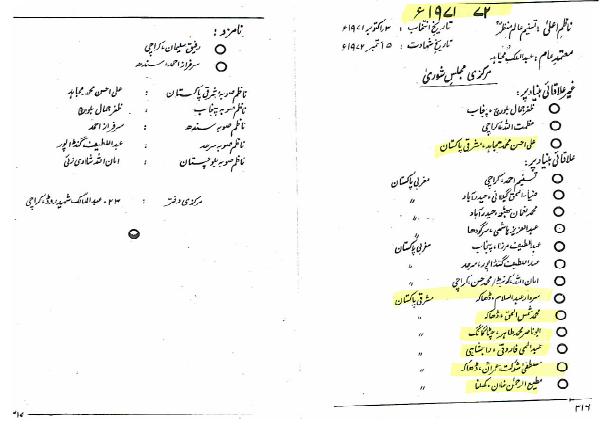 ۷۲ ۱۹۷۱ء
ناظم اعلیٰ: تسنیم عالم منظر
تاریخ انتخاب: ۳ اکتوبر ۱۹۷۱ء
تاریخ شہادت: ۱۵ ستمبر ۱۹۷۲ء
معتمد عام: عبدالملک مجاہد
مرکزی مجلس شوریٰ
غیر علاقائی بنیاد پر:
ظفر جمال بلوچ، پنجاب
عظمت اللہ، کراچی
علی احسن محمد مجاہد، مشرقی پاکستان
علاقائی بنیاد پر:
تسنیم احمد، کراچی مغربی پاکستان
گیلانی، حیدرآباد 〃
محمد نعمان، حیدرآباد 〃
عبدالعزیز ہاشمی، سرگودھا 〃
عبداللطیف مرزا، پنجاب مغربی پاکستان
عبداللطیف گنڈاپور، سرحد 〃
امان اللہ محمد حسن، کراچی 〃
سردار عبدالسلام، ڈھاکہ مشرقی پاکستان
محمد شمس الحق، ڈھاکہ 〃
ابو ناصر محمد طاہر، چٹاگانگ 〃
عبدالحی فاروقی، راجشاہی 〃
مصطفیٰ شوکت عمران، ڈھاکہ 〃
مطیع الرحمٰن خان، کھلنا 〃
۳۱۶
نامزد:
رفیق سلیمان، کراچی
سرفراز احمد، سندھ
ناظم صوبہ مشرقی پاکستان : علی احسن محمد مجاہد
ناظم صوبہ پنجاب : ظفر جمال بلوچ
ناظم صوبہ سندھ : سرفراز احمد
ناظم صوبہ سرحد : عبداللطیف گنڈاپور
ناظم صوبہ بلوچستان : امان اللہ شادی زئی
مرکزی دفتر : ۲۳، عبدالمالک شہید روڈ، کراچی